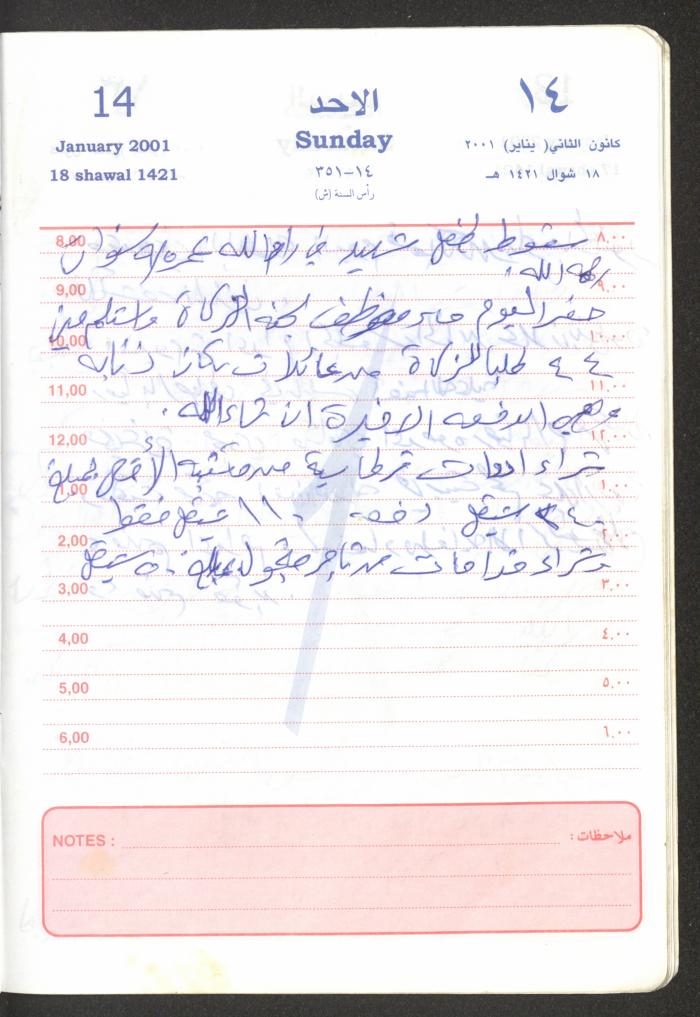 14 الاحد ١٤
January 2001 Sunday كانون الثاني( يناير) ٢٠٠١
18 shawal 1421 ١٤-٣٥١ ١٨ شوال ١٤٢١ هـ
رأس السنة (ش)
8,00 ٨.٠٠
سقوط طفل شهيد في رام الله عمره سنوات
رحمه الله.
9,00 ٩.٠٠
حضر اليوم موظف لجنة الزكاة واستلم مني
10,00 ١٠.٠٠
٤٤ طلبا للزكاة من عائلات سكان ذنابه
11,00 ١١.٠٠
وهي الدفعه الاخيرة ان شاء الله.
12,00 ١٢.٠٠
شراء ادوات قرطاسية من مكتبة الأقصى بمبلغ
1,00 ١.٠٠
شيقل دفعه ١١٠ شيقل فقط
2,00 ٢.٠٠
وشراء من تاجر متجول بمبلغ ٥٠ شيقل
3,00 ٣.٠٠
4,00 ٤.٠٠
5,00 ٥.٠٠
6,00 ٦.٠٠
NOTES : ملاحظات :